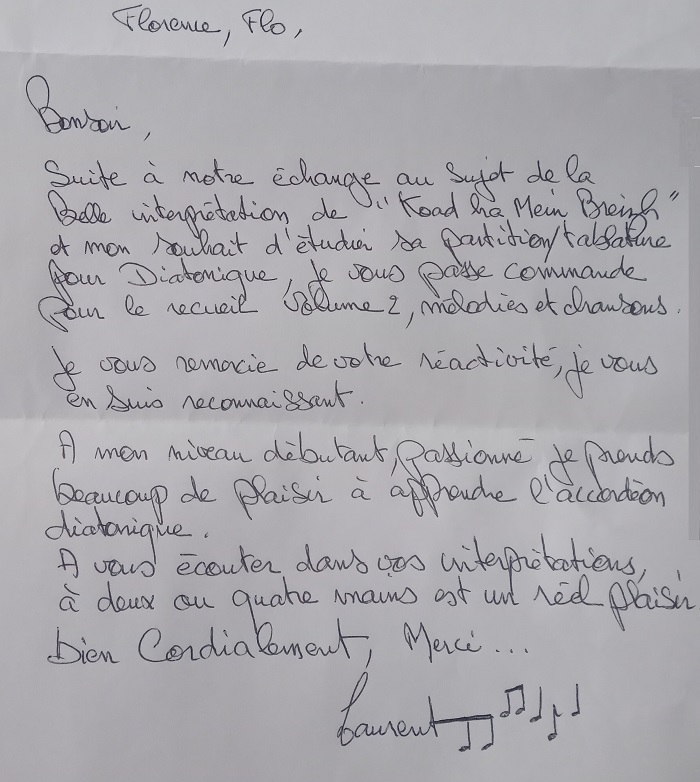 Florence, Flo,
Bonsoir,
Suite à notre échange au sujet de la
Belle interprétation de "Koad ha Mein Breizh"
et mon souhait d'étudier sa partition/tablature
pour Diatonique, je vous passe commande
pour le recueil volume 2, mélodies et chansons.
Je vous remercie de votre réactivité, je vous
en suis reconnaissant.
A mon niveau débutant, passionné je prends
beaucoup de plaisir à apprendre l'accordéon
diatonique.
A vous écouter dans vos interprétations,
à deux ou quatre mains est un réel plaisir
bien Cordialement, Merci...
Laurent